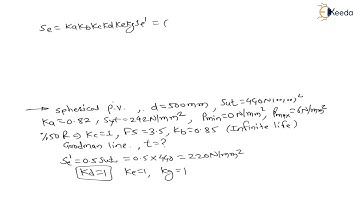 Ekeeda
Se = KaKbKcKdKeKgSe' = (
→ spherical P.V., d=500mm, Sut=440N/mm²
Ka=0.82, Syt=242N/mm², Pmin=0N/mm², Pmax=6N/mm²
%50R → Kc=1, FS=3.5, Kb=0.85 (Infinite life)
Goodman line., t=?
Se'=0.5Sut = 0.5×440=220N/mm²
Kd=1 Ke=1, Kg=1